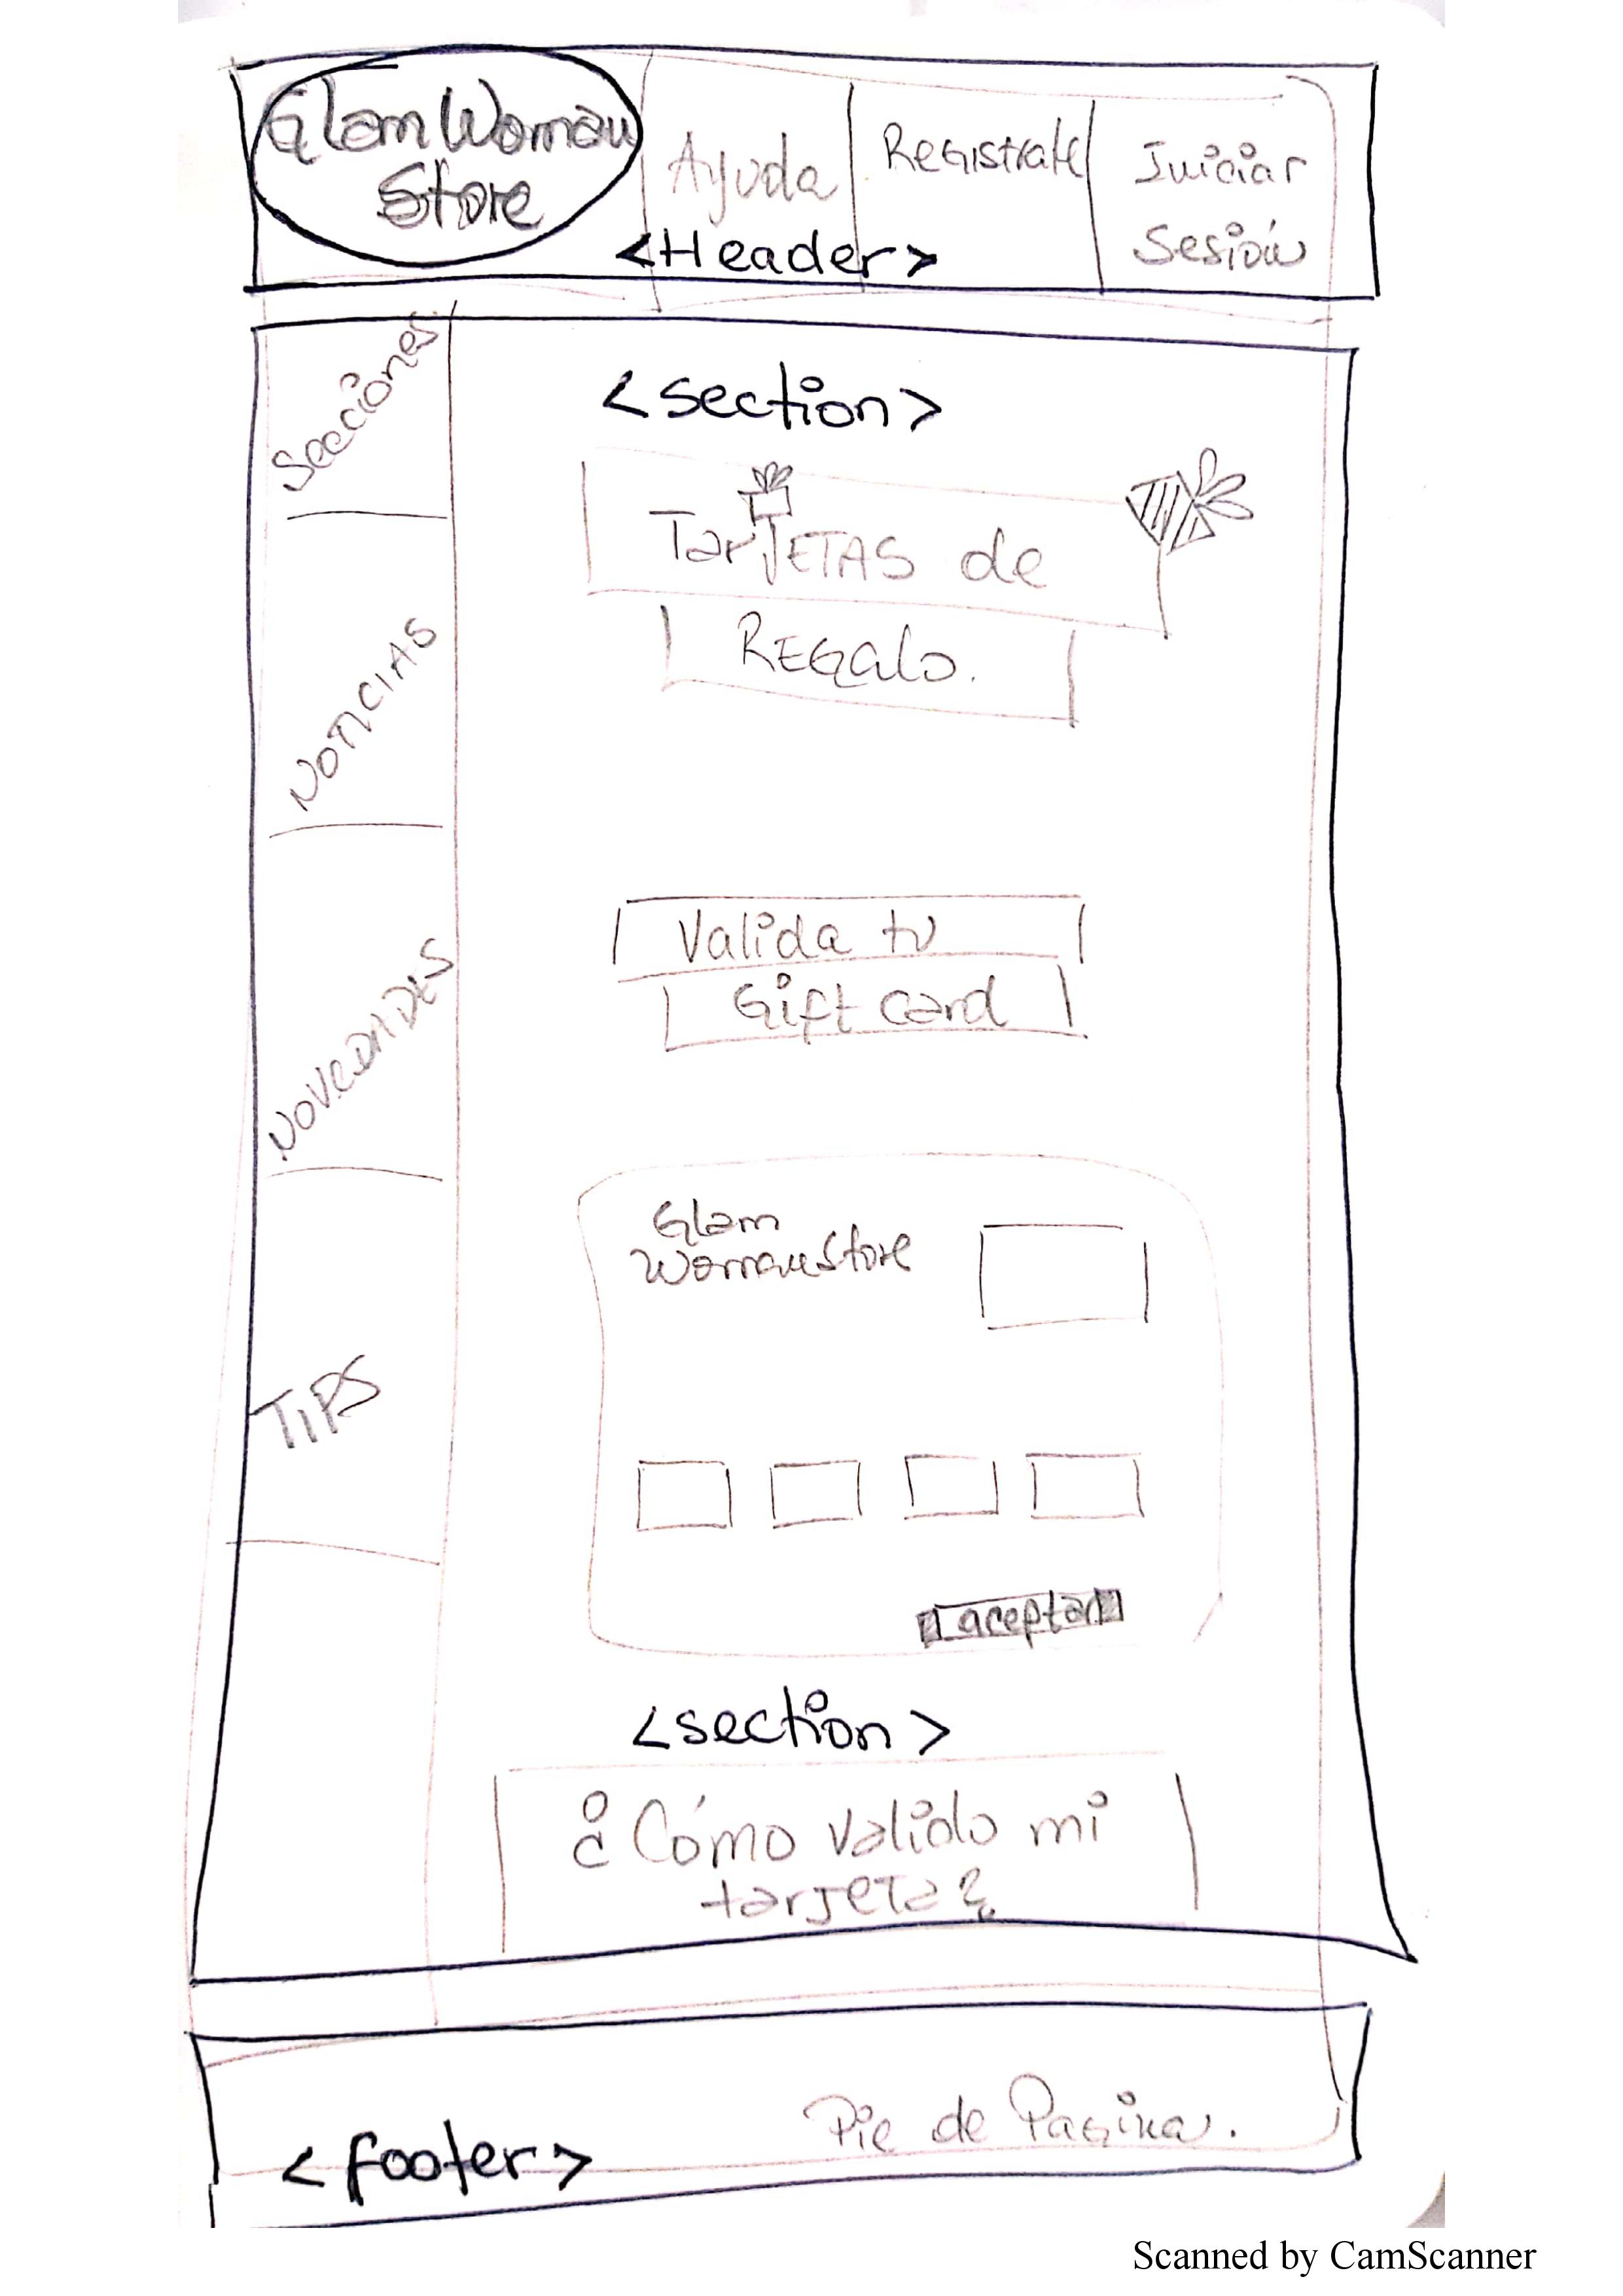 Glam Woman
Store
Ayuda
Registrate
Iniciar
Sesión
<Header>
Secciones
NOTICIAS
NOVEDADES
TIPS
<section>
TarJETAS de
REGalo.
Valida tu
Gift card
Glam
Woman Store
aceptar
<section>
¿Cómo valido mi
tarjeta?
<footer>
Pie de Pagina.
Scanned by CamScanner